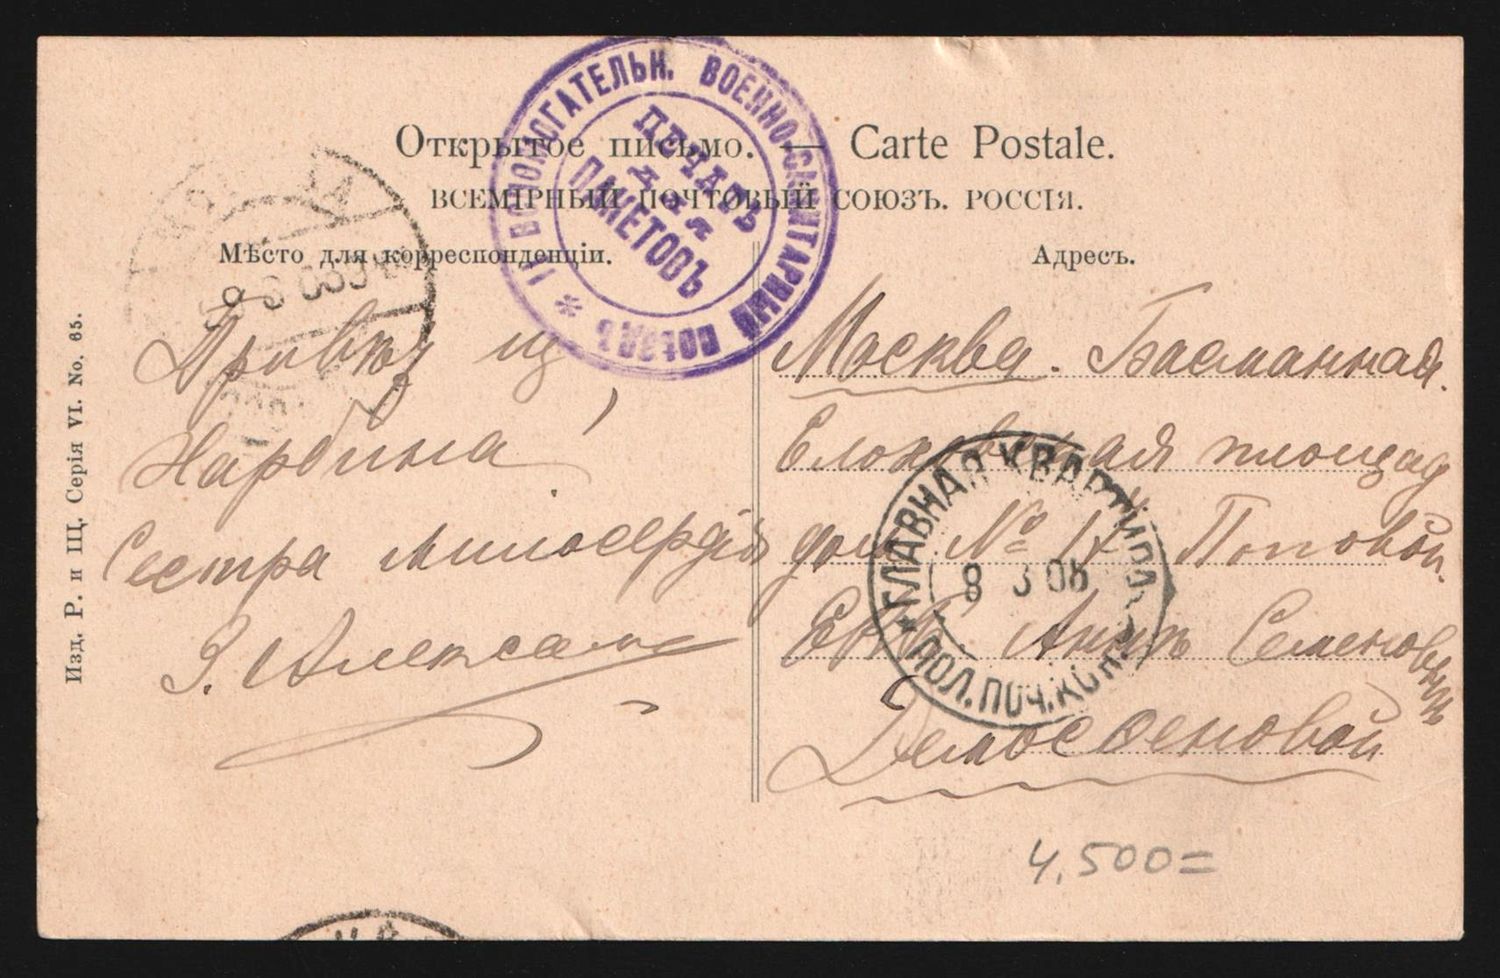 Открытое письмо. — Carte Postale.
ВСЕМІРНЫЙ ПОЧТОВЫЙ СОЮЗЪ. РОССІЯ.
Мѣсто для корреспонденціи.
Адресъ.
ВСПОМОГАТЕЛЬН. ВОЕННО-САНИТАРНЫЙ ПОѢЗДЪ *
ПЕЧАТЬ
ДЛЯ
ПАКЕТОВЪ
Привѣт из
Харбина!
Сестра милосердія
З. Алексан
Москва. Басманная.
Елоховская площад
дом № 17 Поповой.
Ея Аннѣ Семеновнѣ
Демосееновой
ГЛАВНАЯ КВАРТИРА
8 3 06
ПОЛ. ПОЧ. КОН.
4.500=
Изд. Р. и Щ. Серія VI. No. 65.